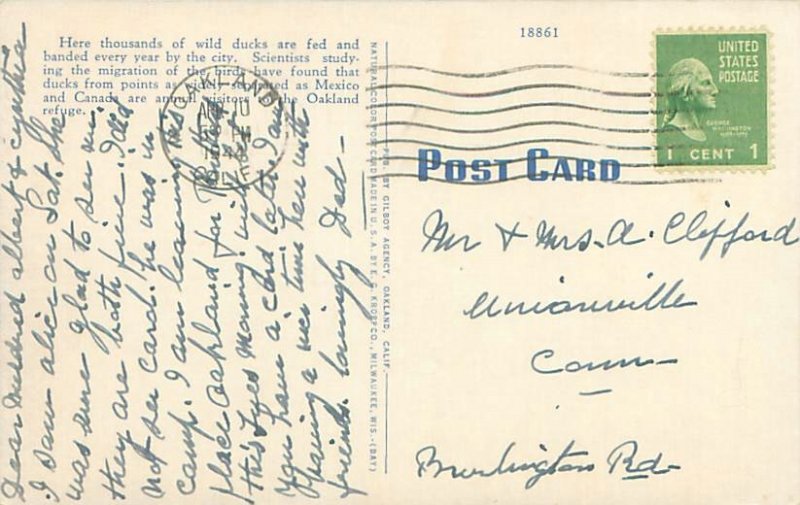 18861
Here thousands of wild ducks are fed and
banded every year by the city. Scientists study-
ing the migration of the birds have found that
ducks from points as widely separated as Mexico
and Canada are annual visitors to the Oakland
refuge.
UNITED
STATES
POSTAGE
GEORGE
WASHINGTON
1 CENT 1
OAKLAND
POST CARD
NATURAL COLOR POST CARD MADE IN U.S.A. BY E. C. KROPP CO., MILWAUKEE, WIS.-(BAY)
PUB. BY GILBOY AGENCY, OAKLAND, CALIF.
Dear Mildred albert & Cynthia
I saw alice on Sat. She
was sure glad to see me.
they are both fine. I did
not see carol. he was in
camp. I am leaving this
place Oakland for
this Tues morning. will
you have a card later. I am
having a nice time here with
friends. lovingly Dad-
Mr & Mrs. A. Clifford
Unionville
Conn-
Burlington Rd-